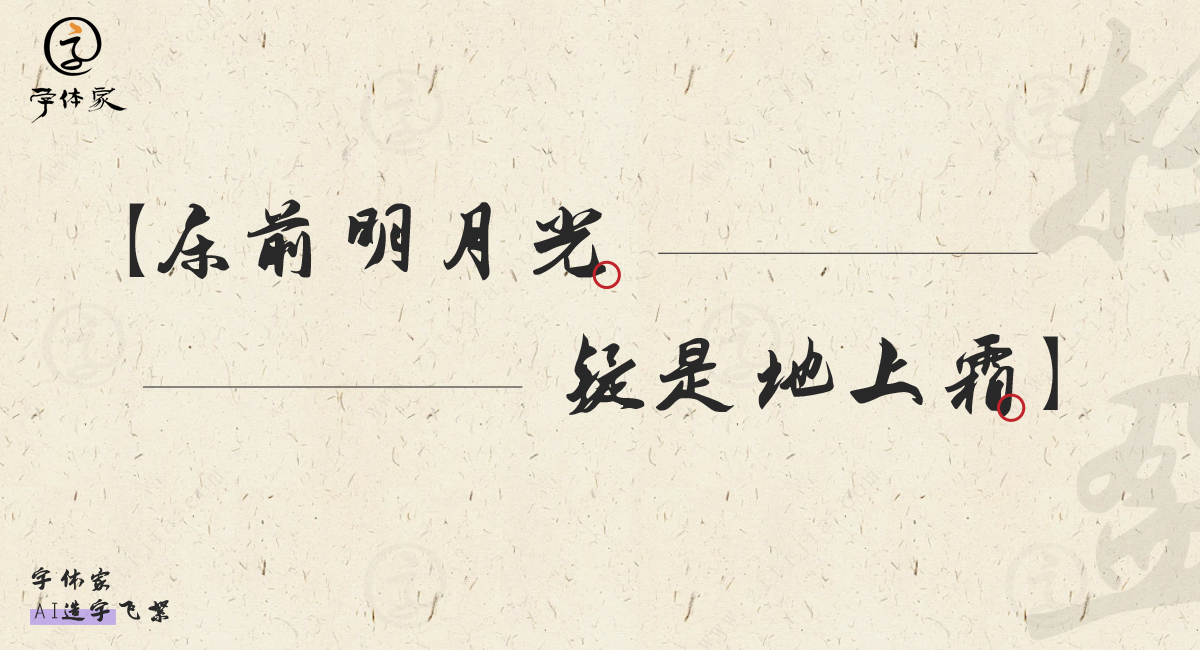 字体家
【床前明月光
疑是地上霜】
字体家
AI造字飞絮